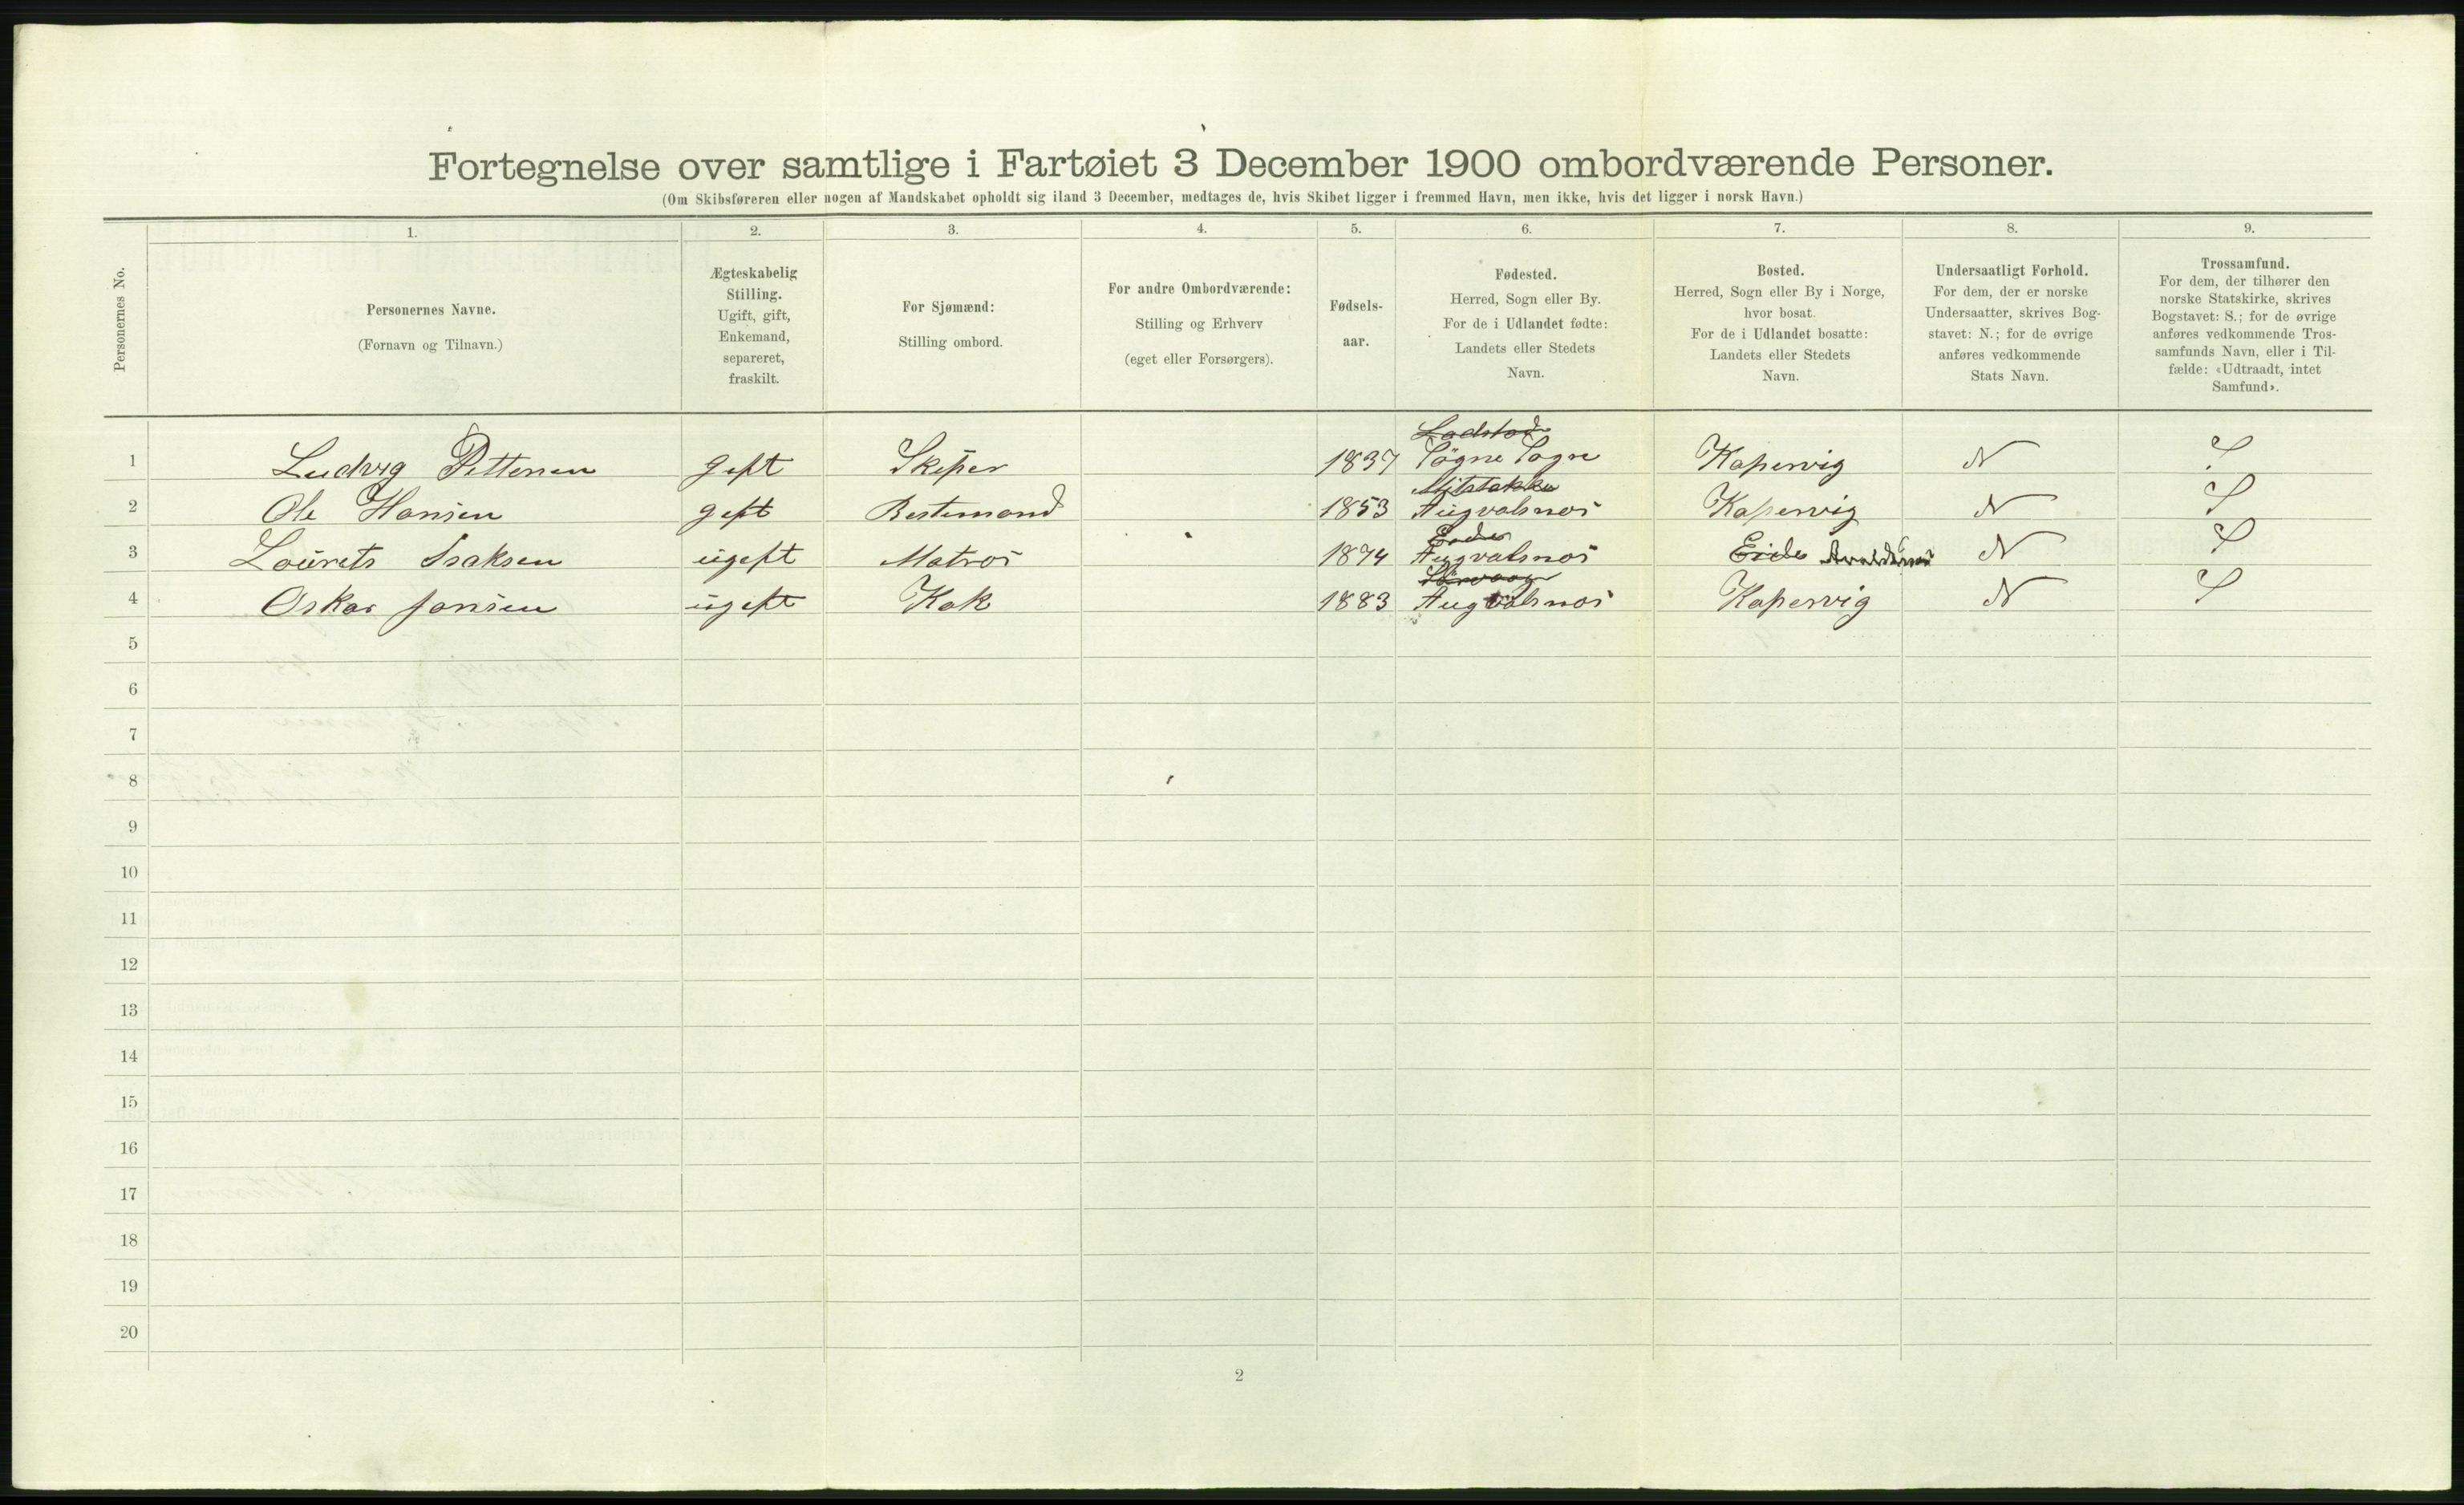 Fortegnelse over samtlige i Fartøiet 3 December 1900 ombordværende Personer.
(Om Skibsføreren eller nogen af Mandskabet opholdt sig iland 3 December, medtages de, hvis Skibet ligger i fremmed Havn, men ikke, hvis det ligger i norsk Havn.)
Personernes No.
1.
Personernes Navne.
(Fornavn og Tilnavn.)
2.
Ægteskabelig
Stilling.
Ugift, gift,
Enkemand,
separeret,
fraskilt.
3.
For Sjømænd:
Stilling ombord.
4.
For andre Ombordværende:
Stilling og Erhverv
(eget eller Forsørgers).
5.
Fødsels-
aar.
6.
Fødested.
Herred, Sogn eller By.
For de i Udlandet fødte:
Landets eller Stedets
Navn.
7.
Bosted.
Herred, Sogn eller By i Norge,
hvor bosat.
For de i Udlandet bosatte:
Landets eller Stedets
Navn.
8.
Undersaatligt Forhold.
For dem, der er norske
Undersaatter, skrives Bog-
stavet: N.; for de øvrige
anføres vedkommende
Stats Navn.
9.
Trossamfund.
For dem, der tilhører den
norske Statskirke, skrives
Bogstavet: S.; for de øvrige
anføres vedkommende Tros-
samfunds Navn, eller i Til-
fælde: «Udtraadt, intet
Samfund».
1 Ludvig Pettersen gift Skiper 1837 Sögne Sogn Kapervig N S
2 Ole Hansen gift Bestemand 1853 Augvalsnes Kapervig N S
Eide
3 Lourets Isaksen ugift Matros 1874 Augvalsnes Eide N S
4 Oskar Jansen ugift Kok 1883 Augvalsnes Kapervig N S
5
6
7
8
9
10
11
12
13
14
15
16
17
18
19
20
2